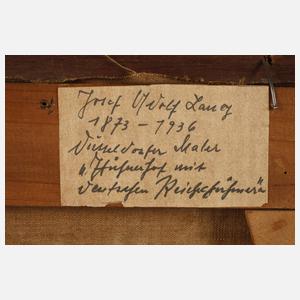 Josef Adolf Lang
1873 – 1936
Düsseldorfer Maler
„Hühnerhof mit
deutschen Reichshühnern"